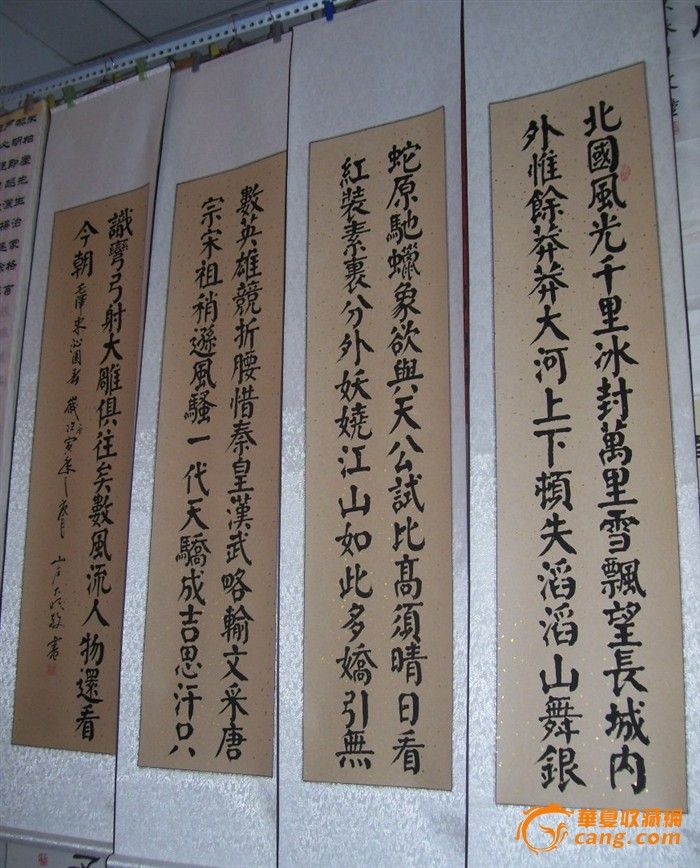 北國風光千里冰封萬里雪飄望長城内
外惟餘莽莽大河上下頓失滔滔山舞銀
蛇原馳蠟象欲與天公試比高須晴日看
紅裝素裹分外妖嬈江山如此多嬌引無
數英雄競折腰惜秦皇漢武略輸文采唐
宗宋祖稍遜風騷一代天驕成吉思汗只
識彎弓射大雕俱往矣數風流人物還看
今朝 毛澤東沁園春 歲次寅年 月 敬書
治家格言
華夏收藏網
cang.com